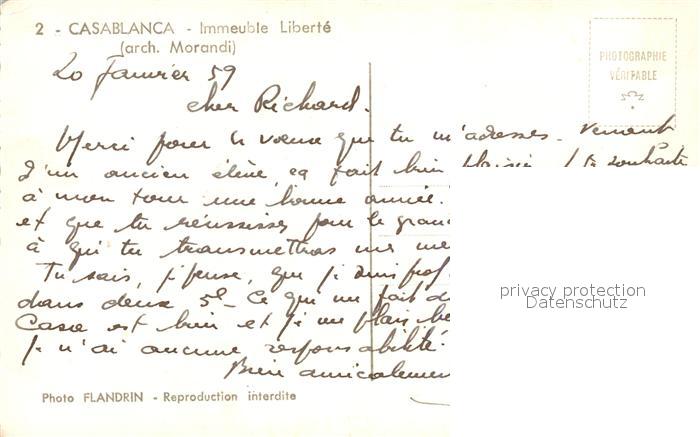 2 - CASABLANCA - Immeuble Liberté
(arch. Morandi)
PHOTOGRAPHIE
VÉRITABLE
20 Janvier 59
cher Richard.
Merci pour les voeux que tu m'adresses. Venant
d'un ancien élève, ça fait bien plaisir. Je te souhaite
à mon tour une bonne année.
et que tu réussisses pour le
à qui tu transmettras
Tu sais, je pense, que je suis prof
dans deux 5e. Ce qui me fait
Casa est bien et je me plais
Je n'ai aucune responsabilité.
Bien
privacy protection
Datenschutz
Photo FLANDRIN - Reproduction interdite